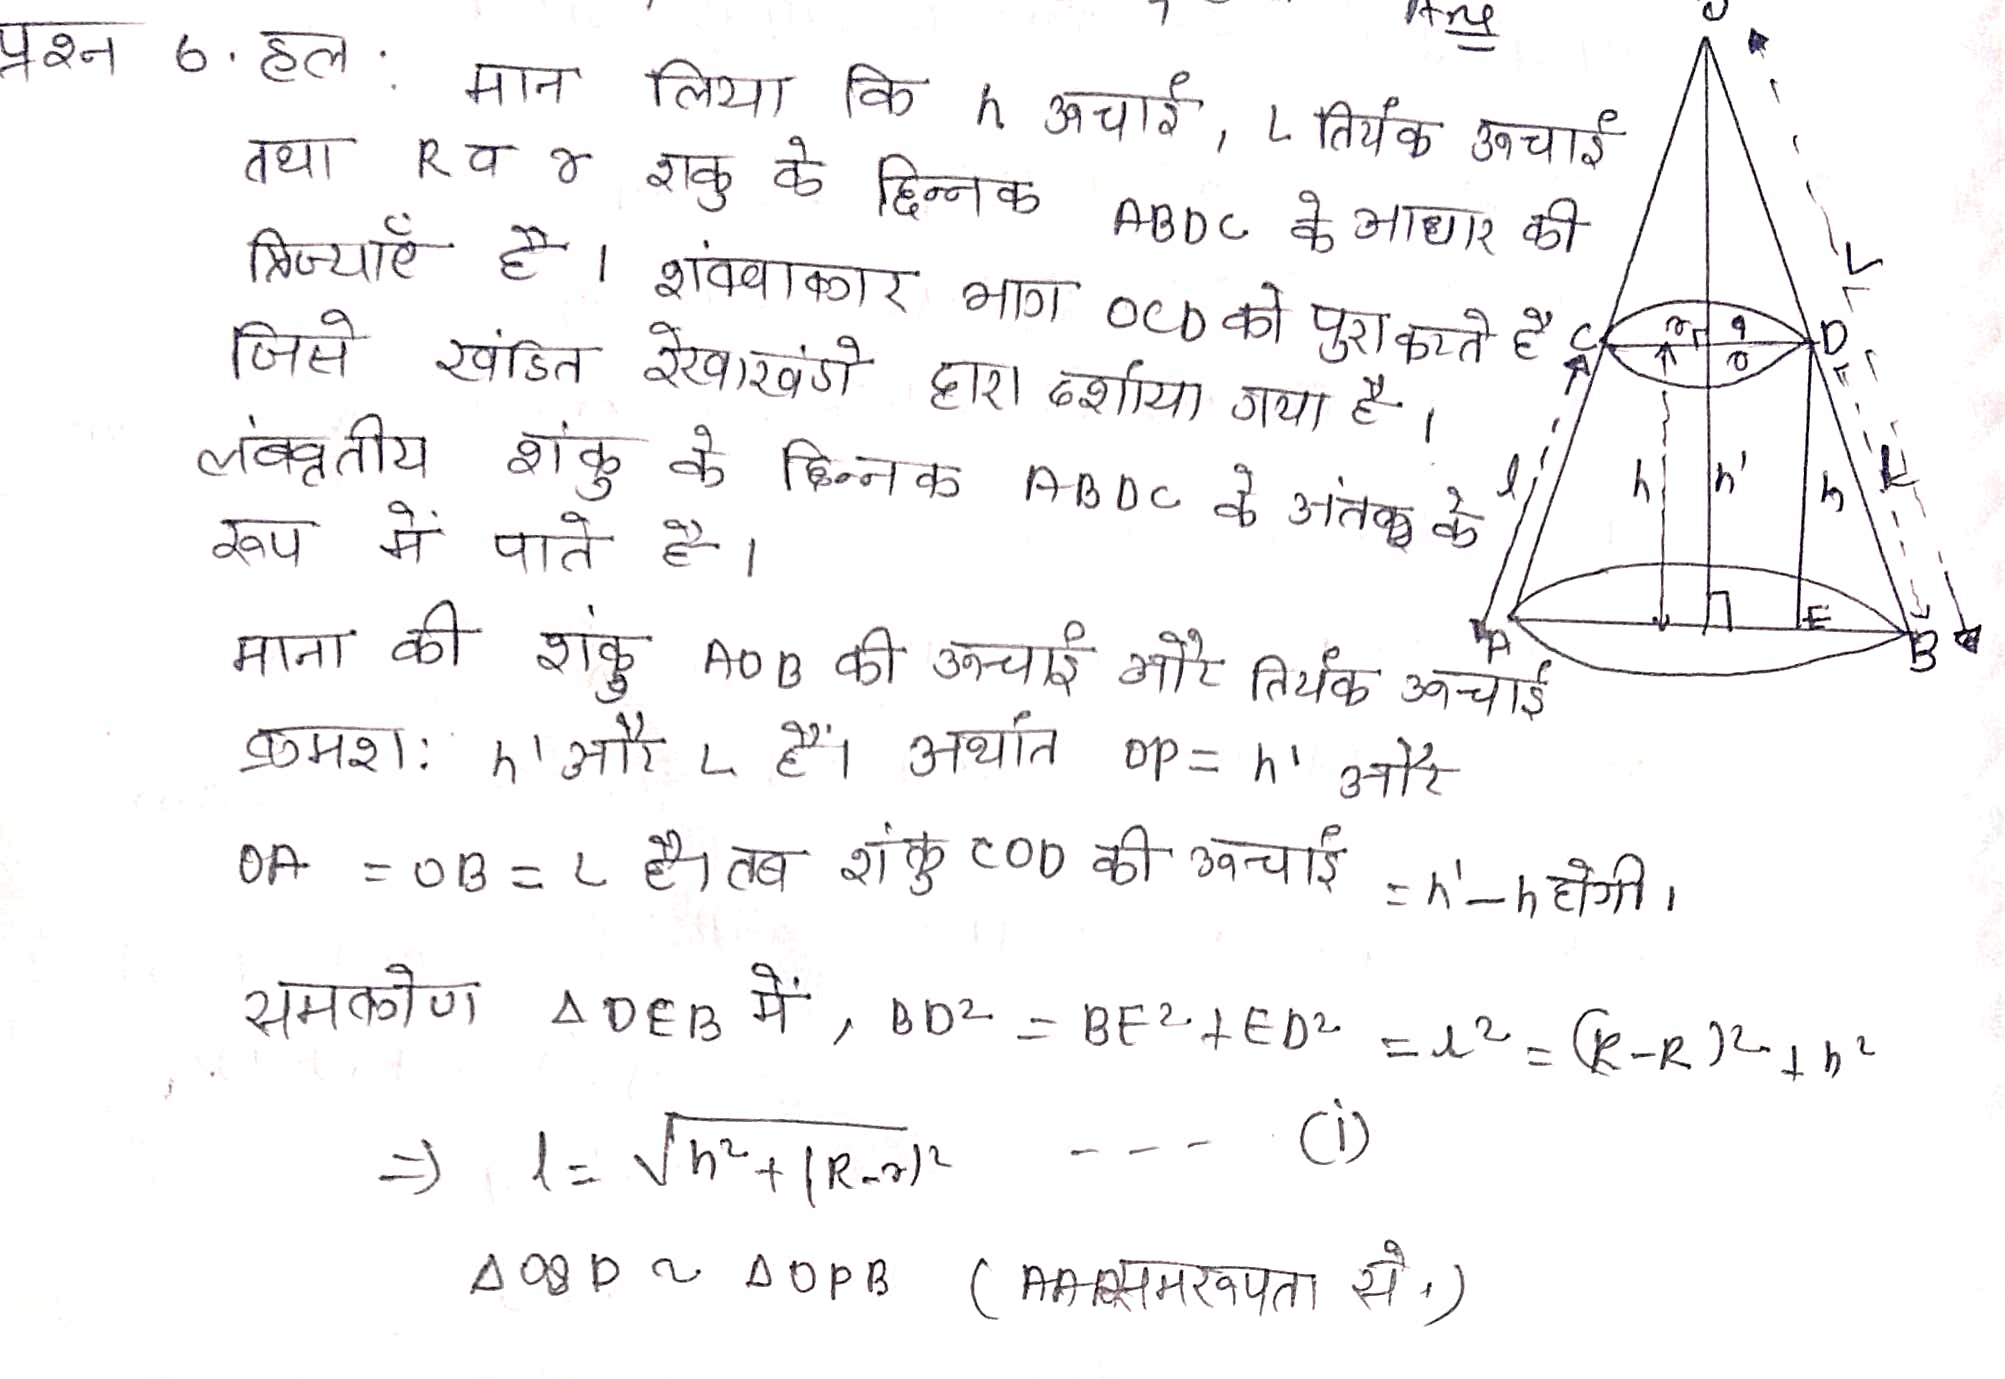 Ans
प्रश्न 6. हल :
मान लिया कि h ऊचाई, L तिर्यक ऊचाई
तथा R व r शकु के छिन्नक ABDC के आधार की
त्रिज्याएँ है । शंक्वाकार भाग OCD को पुरा करते है
जिसे खंडित रेखाखंडो द्वारा दर्शाया गया है ।
लंबवृतीय शंकु के छिन्नक ABDC के अंतर के
रूप में पाते है ।
माना की शंकु AOB की ऊचाई और तिर्यक ऊचाई
क्रमश: h' और L हैं। अर्थात OP = h' और
OA = OB = L है। तब शंकु COD की ऊचाई = h' - h होगी ।
समकोण Δ DEB में , BD² = BE² + ED² = l² = (R-R)² + h²
⇒ l = √h² + (R-r)² ---- (i)
Δ OQD ~ Δ OPB ( AA समरूपता से ।)
O
L
C
r
q
D
l
h
h'
h
A
E
B